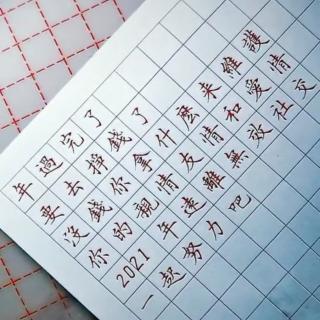 年過完了
要去掙錢了
沒錢你拿什麼来維護
你的親情友情和愛情
2021年遠離無效社交
一起努力吧